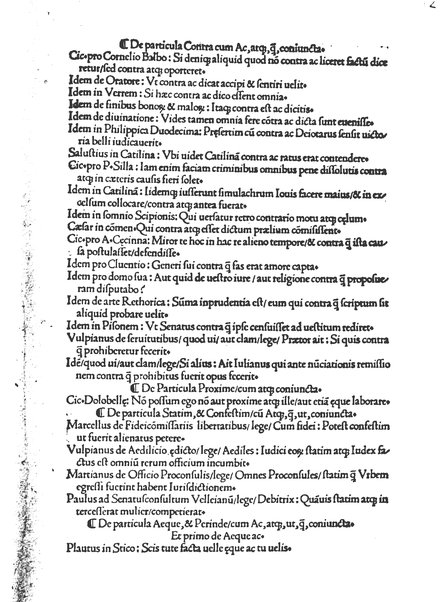 2
¶ De particula Contra cum Ac, atq;, q̄, coniuncta.
Cic⁊pro Cornelio Balbo: Si deniq; aliquid quod nō contra ac liceret factū dice
retur/sed contra atq; oporteret.
Idem de Oratore: Vt contra ac dicat accipi & sentiri uelit.
Idem in Verrem: Si hæc contra ac dico essent omnia.
Idem de finibus bonoꝝ & maloꝝ: Itaq; contra est ac dicitis.
Idem de diuinatione: Vides tamen omnia fere cōtra ac dicta sunt euenisse.
Idem in Philippica Duodecima: Præsertim cū contra ac Deiotarus sensit uicto
ria belli iudicauerit.
Salustius in Catilina: Vbi uidet Catilinā contra ac ratus erat contendere.
Cic⁊pro P.Silla: Iam enim faciam criminibus omnibus pene dissolutis contra
atq; in cæteris causis fieri solet.
Idem in Catilinā: Idemq; iusserunt simulachrum Iouis facere maius/& in ex
celsum collocare/contra atq; antea fuerat.
Idem in somnio Scipionis: Qui uersatur retro contrario motu atq; cęlum.
Cæsar in cōmen. Qui contra atq; esset dictum prælium cōmisissent.
Cic⁊pro A.Cęcinna: Miror te hoc in hac re alieno tempore/& contra q̄ ista cau
sa postulasset/defendisse.
Idem pro Cluentio: Generi sui contra q̄ fas erat amore capta.
Idem pro domo sua: Aut quid de uestro iure / aut religione contra q̄ proposue
ram disputabo?
Idem de arte Rethorica: Sūma inprudentia est/ eum qui contra q̄ scriptum sit
aliquid probare uelit.
Idem in Pisonem: Vt Senatus contra q̄ ipse censuisset ad uestitum rediret.
Vulpianus de seruitutibus/ quod ui/ aut clam/lege/ Prætor ait: Si quis contra
q̄ prohiberetur fecerit.
Idē/quod ui/aut clam/lege/Si alius: Ait Iulianus qui ante nūciationis remissio
nem contra q̄ prohibitus fuerit opus fecerit.
¶ De Particula Proxime/cum atq; coniuncta.
Cic. Dolobellę: Nō possum ego nō aut proxime atq; ille/aut etiā ęque laborare.
¶ De particula Statim, & Confestim/cū Atq;, q̄, ut, coniuncta.
Marcellus de Fideicōmissariis libertatibus/lege/ Cum fidei: Potest confestim
ut fuerit alienatus petere.
Vulpianus de Aedilicio ędicto/lege/ Aediles: Iudici eoꝝ statim atq; Iudex fa
ctus est omniū rerum officium incumbit.
Martianus de Officio Proconsulis/lege/ Omnes Proconsules/statim q̄ Vrbem
egressi fuerint habent Iurisdictionem.
Paulus ad Senatusconsultum Velleianū/lege/ Debitrix: Quāuis statim atq; in
tercesserat mulier/competierat.
¶ De particula Aeque, & Perinde/cum Ac, atq;, ut, q̄, coniuncta.
Ex primo de Aeque ac.
Plautus in Stico: Scis tute facta uelle ęque ac tu uelis.